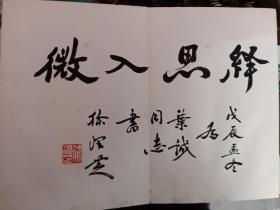 繹思入微
戊辰孟冬
为
葉誠
同志
書
徐